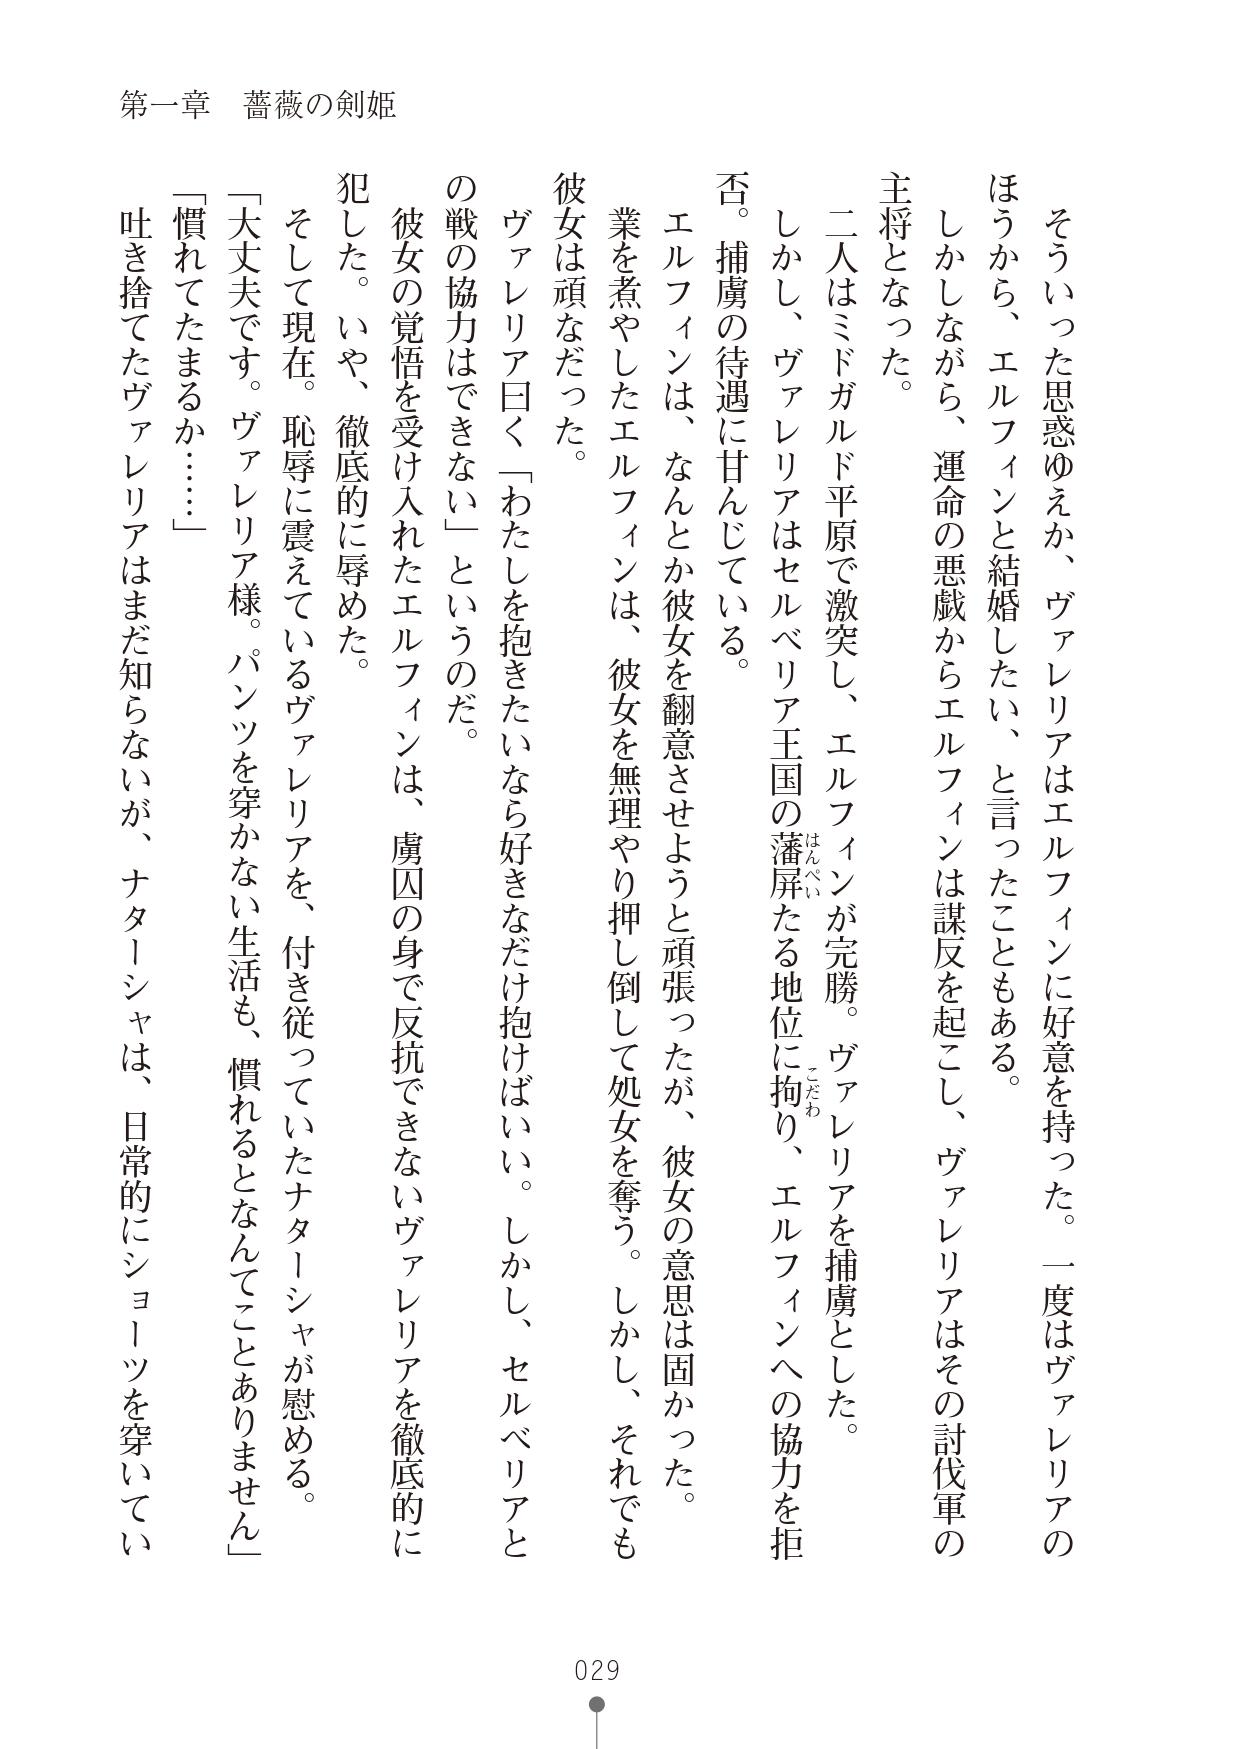 第一章　薔薇の剣姫
　そういった思惑ゆえか、ヴァレリアはエルフィンに好意を持った。一度はヴァレリアの
ほうから、エルフィンと結婚したい、と言ったこともある。
　しかしながら、運命の悪戯からエルフィンは謀反を起こし、ヴァレリアはその討伐軍の
主将となった。
　二人はミドガルド平原で激突し、エルフィンが完勝。ヴァレリアを捕虜とした。
　しかし、ヴァレリアはセルベリア王国の藩屏たる地位に拘り、エルフィンへの協力を拒
はんぺい
こだわ
否。捕虜の待遇に甘んじている。
　エルフィンは、なんとか彼女を翻意させようと頑張ったが、彼女の意思は固かった。
　業を煮やしたエルフィンは、彼女を無理やり押し倒して処女を奪う。しかし、それでも
彼女は頑なだった。
　ヴァレリア曰く「わたしを抱きたいなら好きなだけ抱けばいい。しかし、セルベリアと
の戦の協力はできない」というのだ。
　彼女の覚悟を受け入れたエルフィンは、虜囚の身で反抗できないヴァレリアを徹底的に
犯した。いや、徹底的に辱めた。
　そして現在。恥辱に震えているヴァレリアを、付き従っていたナターシャが慰める。
「大丈夫です。ヴァレリア様。パンツを穿かない生活も、慣れるとなんてことありません」
「慣れてたまるか……」
　吐き捨てたヴァレリアはまだ知らないが、ナターシャは、日常的にショーツを穿いてい
029